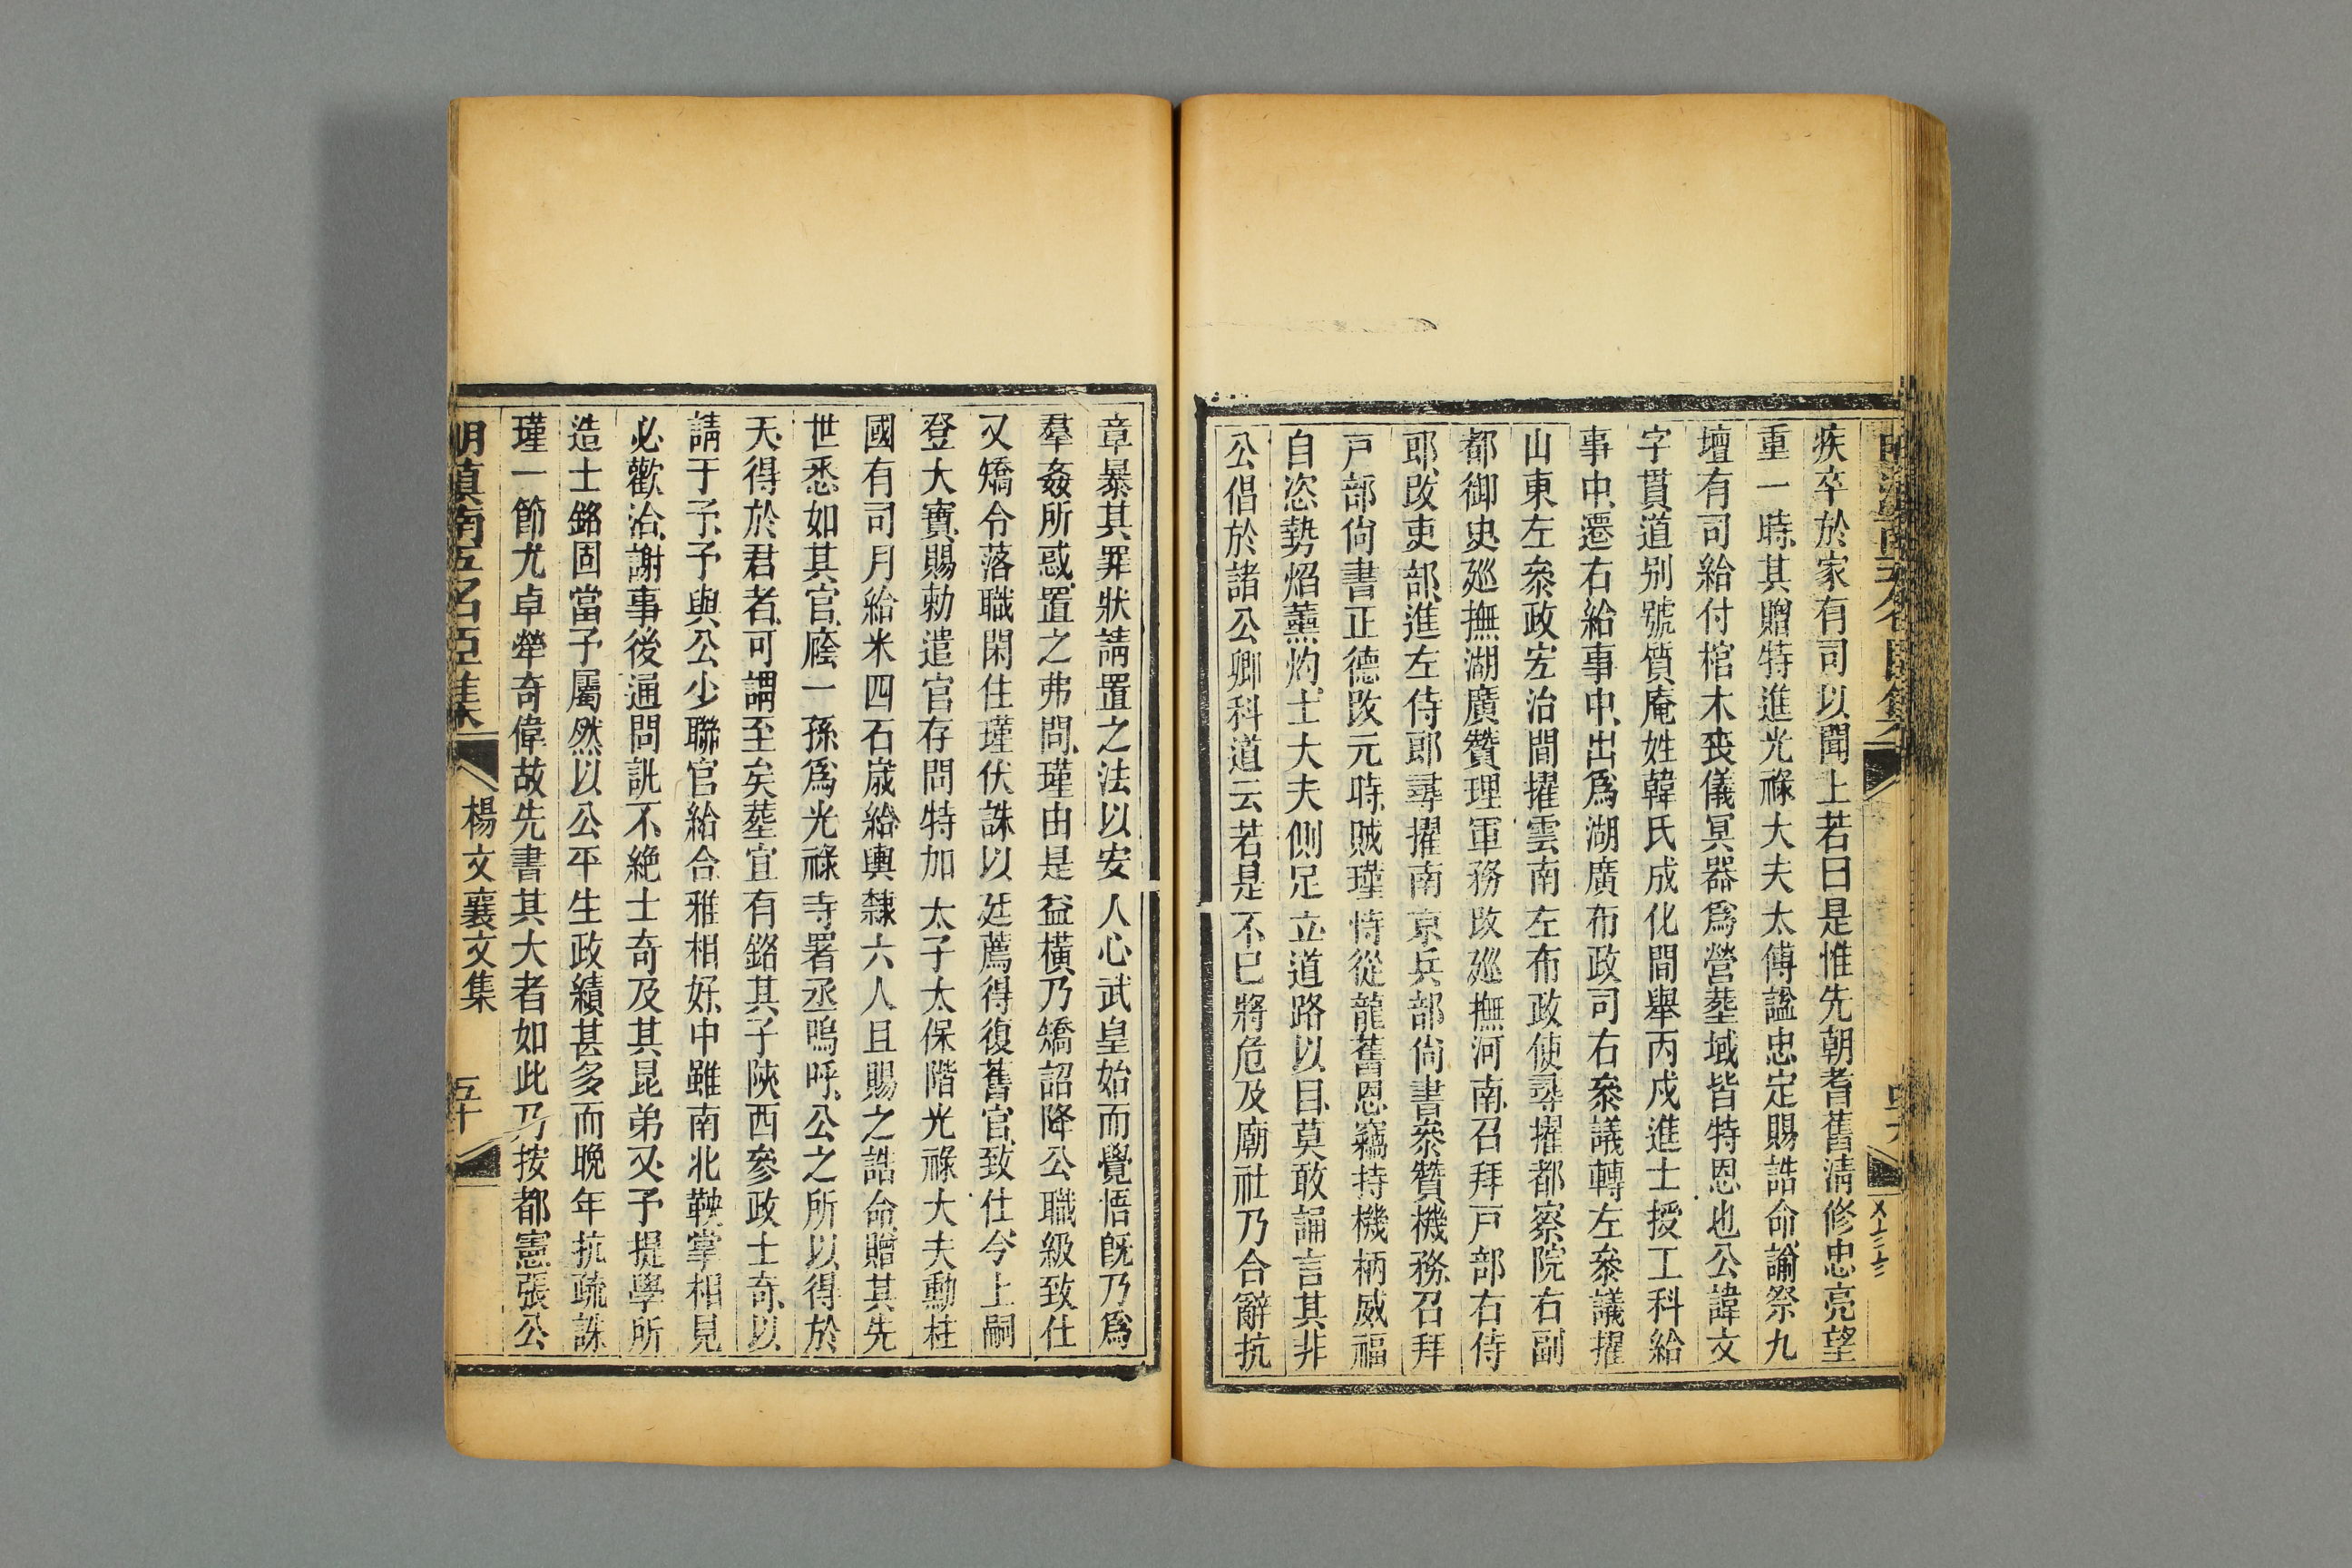 疾卒於家有司以聞上若曰是惟先朝耆舊淸修忠亮望
重一時其贈特進光祿大夫太傅諡忠定賜誥命諭祭九
壇有司給付棺木丧儀冥器爲營塟域皆特恩也公諱文
字貫道别號質庵姓韓氏成化間舉丙戍進士授工科給
事中遷右給事中出爲湖廣布政司右叅議轉左叅議擢
山東左叅政左治間擢雲南左布政使尋擢都察院右副
都御史廵撫湖廣贊理軍務改廵撫河南召拜戸部右侍
郎改吏部進左侍郎尋擢南京兵部尙書叅贊機務召拜
戸部尙書正德改元時賊瑾恃從龍舊恩竊持機柄威福
自恣勢焰薰灼士大夫側足立道路以目莫敢誦言其非
公倡於諸公卿科道云若是不已將危及廟社乃合辭抗
章暴其罪狀請置之法以安人心武皇始而覺悟旣乃爲
羣姦所惑置之弗問瑾由是益橫乃矯詔降公職級致仕
又矯令落職閑住瑾伏誅以廷薦得復舊官致仕今上嗣
登大寶賜勅遣官存問特加太子太保階光祿大夫勳柱
國有司月給米四石歲給輿隸六人且賜之誥命贈其先
世悉如其官廕一孫爲光祿寺署丞嗚呼公之所以得於
天得於君者可謂至矣塟宜有銘其子陝西參政士奇以
請于予予與公少聯官給合雅相好中雖南北鞅掌相見
必歡洽謝事後通問訊不絶士奇及其昆弟又予提學所
造士銘固當予屬然以公平生政績甚多而晚年抗疏誅
瑾一節尤卓犖奇偉故先書其大者如此乃按都憲張公
明滇南五名臣集
楊文襄文集
五十